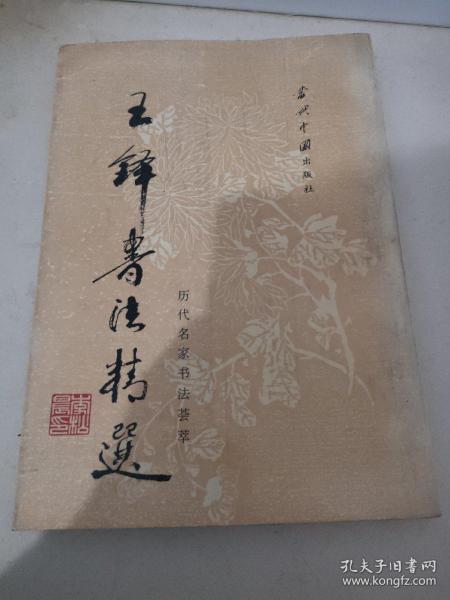 当代中國出版社
历代名家书法荟萃
王鐸书法精選
孔夫子旧书网
www.kongfz.com